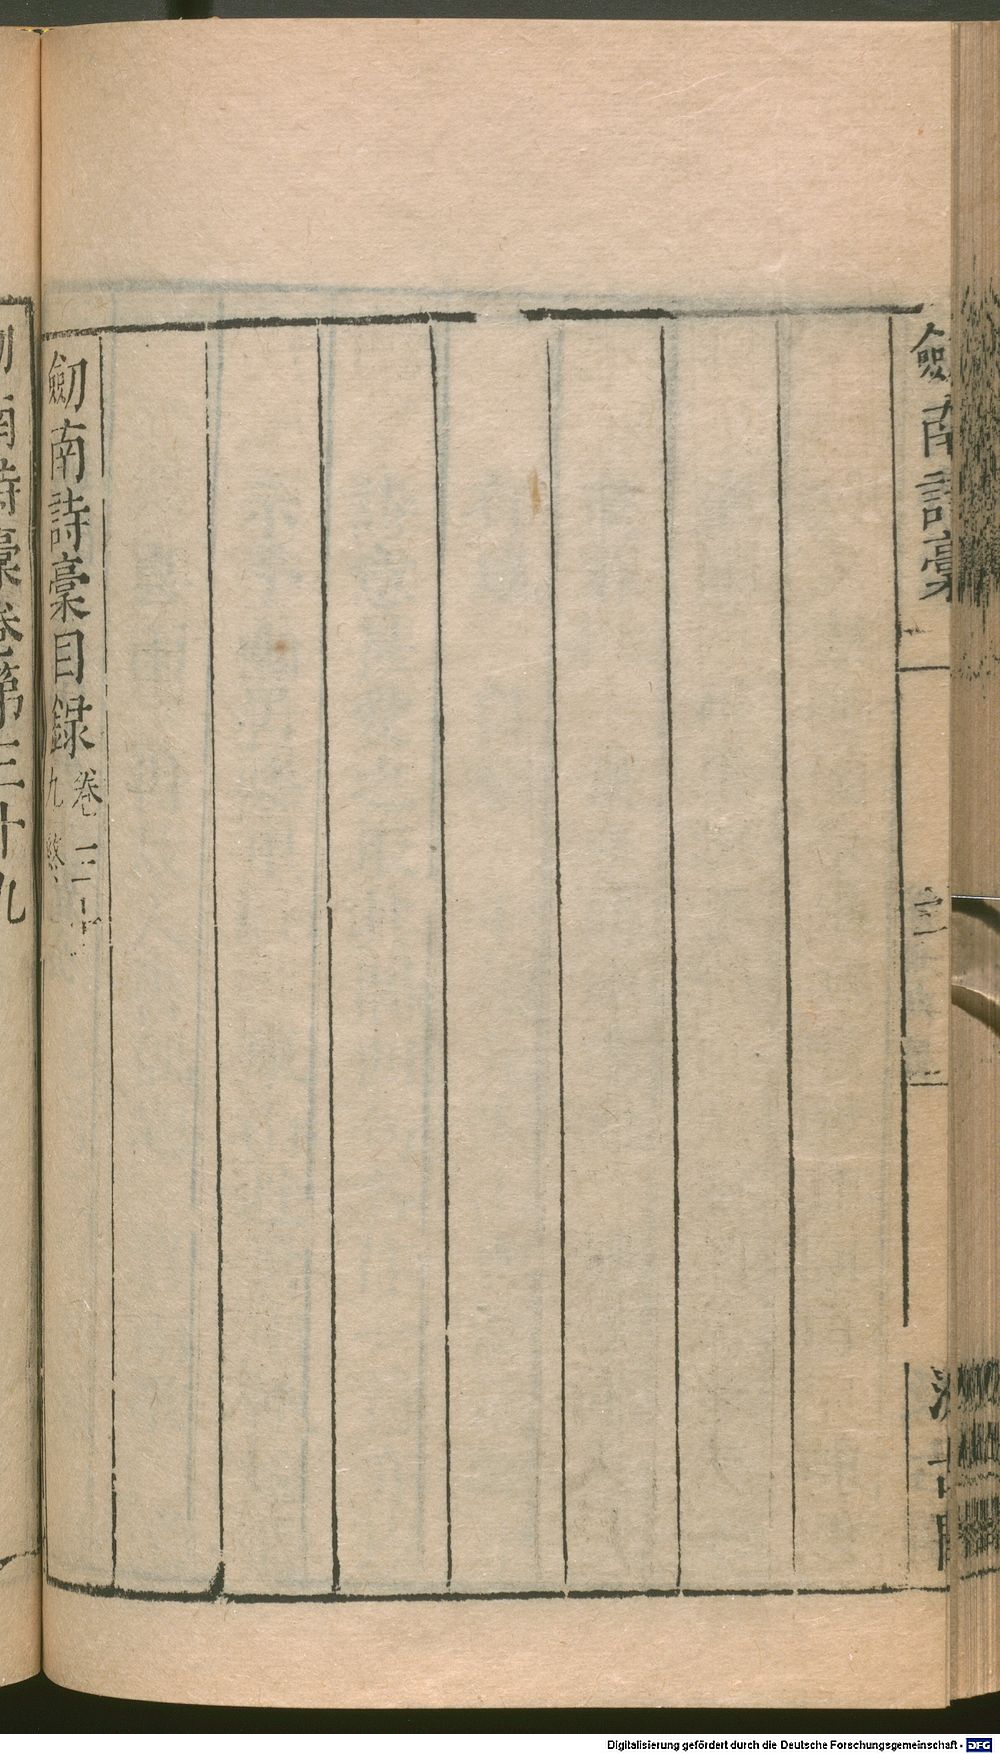 劍南詩稾
劒南詩稾目録 卷三十
九終
南詩稾卷第三十九
Digitalisierung gefördert durch die Deutsche Forschungsgemeinschaft - DFG